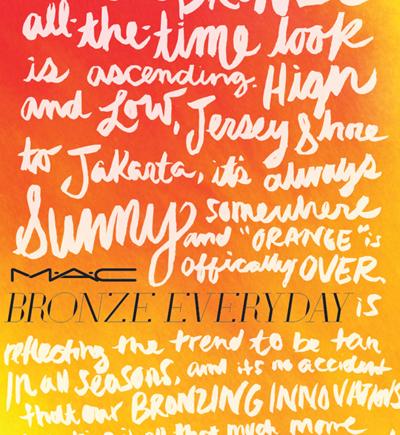 BRONZE
all-the-time look
is ascending. High
and Low, Jersey Shore
to Jakarta, it's always
Sunny somewhere
and "ORANGE" is
officially OVER.
M·A·C
BRONZE EVERYDAY is
reflecting the trend to be tan
IN all SEASONS, and it's no accident
that our BRONZING INNOVATIONS
it all that much more